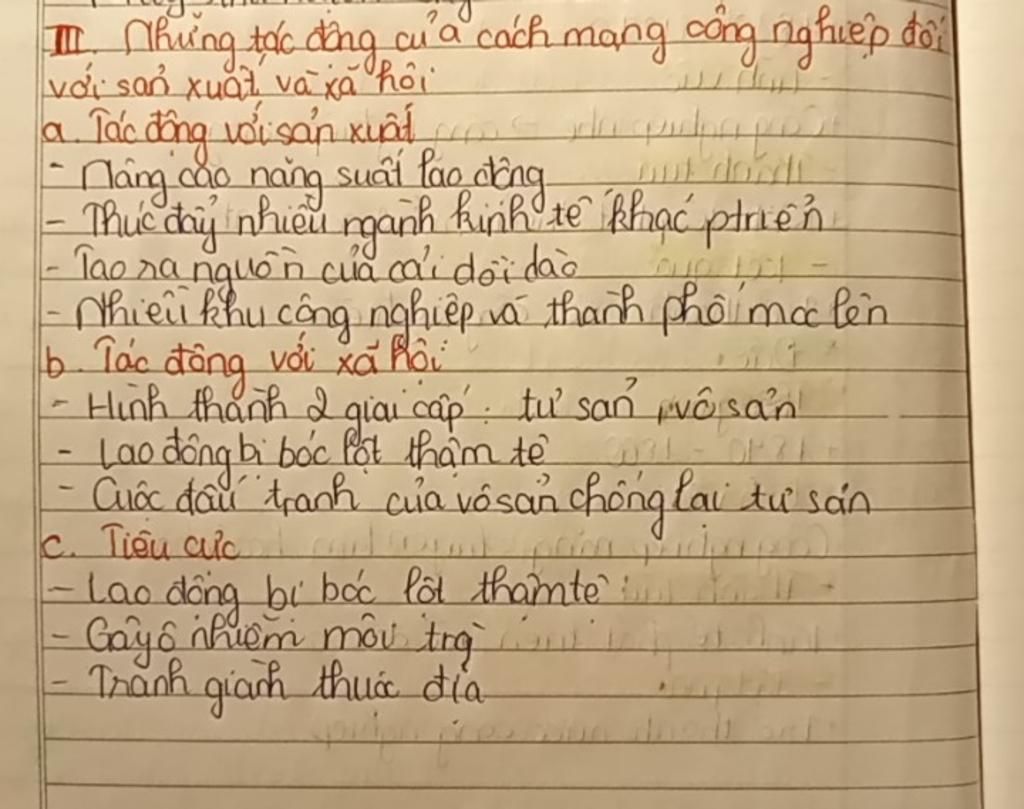 III. Những tác động của cách mạng công nghiệp đối
với sản xuất và xã hội
a. Tác động với sản xuất
- Nâng cao năng suất lao động
- Thúc đẩy nhiều ngành kinh tế khác ptriển
- Tạo ra nguồn của cải dồi dào
- Nhiều khu công nghiệp và thành phố mọc lên
b. Tác động với xã hội
- Hình thành 2 giai cấp: tư sản, vô sản
- Lao động bị bóc lột thậm tệ
- Cuộc đấu tranh của vô sản chống lại tư sản
c. Tiêu cực
- Lao động bị bóc lột thậm tệ
- Gây ô nhiễm môi trg
- Tranh giành thuộc địa